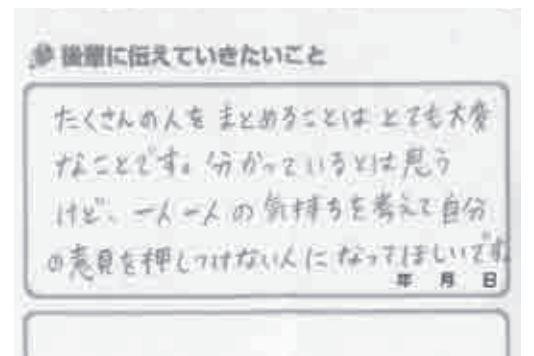 後輩に伝えていきたいこと
たくさんの人をまとめることはとても大変
なことです。分かっているとは思う
けど、一人一人の気持ちを考えて自分
の意見を押しつけない人になってほしいです
年 月 日